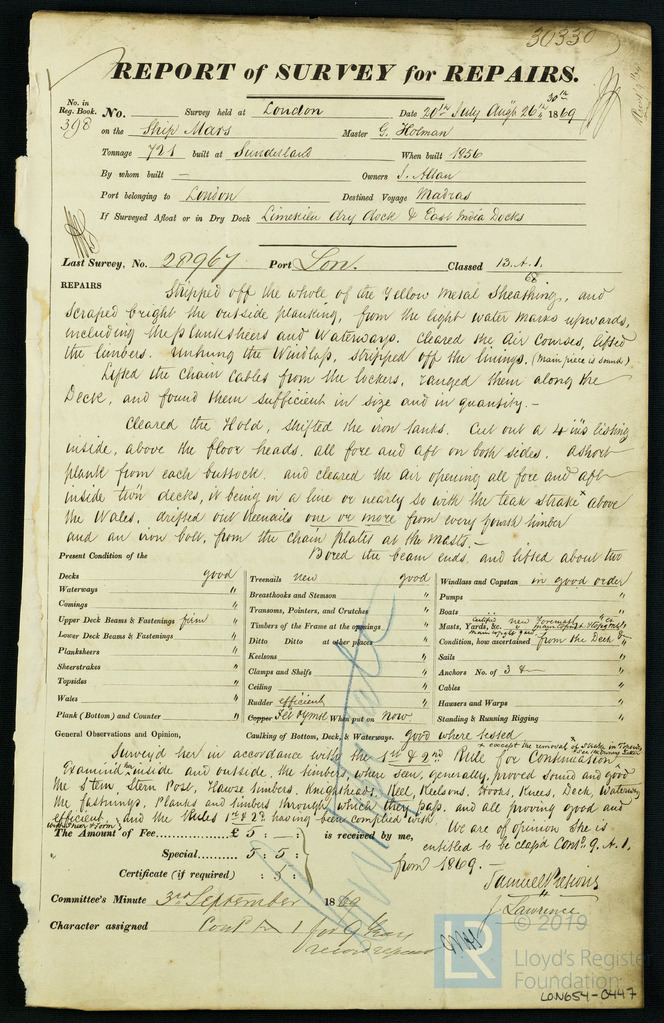 30330
REPORT of SURVEY for REPAIRS.
No. in Reg. Book. 398 No. Survey held at London Date 20th July Augt 26th & 30th 1869
on the Ship Mars Master G. Holman
Tonnage 721 built at Sunderland When built 1856
By whom built — Owners J. Allan
Port belonging to London Destined Voyage Madras
If Surveyed Afloat or in Dry Dock Limekiln dry dock & East India Docks
Last Survey, No. 28967 Port Lon. Classed 13. A. 1.
REPAIRS Stripped off the whole of the Yellow Metal Sheathing, and
Scraped bright the outside planking, from the light water marks upwards,
including the Planksheers and Waterways. Cleared the Air Courses, lifted
the limbers. Unhung the Windlass, stripped off the linings. (Main piece is sound)
Lifted the Chain Cables from the lockers, ranged them along the
Deck, and found them sufficient in size and in quantity. —
Cleared the Hold, shifted the iron tanks. Cut out a 4 ins listing
inside, above the floor heads, all fore and aft on both sides. A short
plank from each buttock, and cleared the air opening all fore and aft
inside twn decks, it being in a line or nearly so with the teak strake x above
the Wales, drifted out treenails one or more from every fourth timber
and an iron bolt, from the chain plates at the masts. —
Bored the beam ends, and lifted about two
Present Condition of the
Decks good Treenails new good Windlass and Capstan in good order
Waterways " Breasthooks and Stemson " Pumps "
Comings " Transoms, Pointers, and Crutches " Boats "
Upper Deck Beams & Fastenings firm Timbers of the Frame at the openings " Masts, Yards, &c. new Foremast
Lower Deck Beams & Fastenings " Ditto Ditto at other places " Condition, how ascertained from the Deck &
Planksheers " Keelsons " Sails "
Sheerstrakes " Clamps and Shelfs " Anchors No. of 3 & — "
Topsides " Ceiling " Cables "
Wales " Rudder efficient Hawsers and Warps "
Plank (Bottom) and Counter " Copper Felt & YMetl When put on Now Standing & Running Rigging "
General Observations and Opinion, Caulking of Bottom, Deck, & Waterways. good where tested
Survey'd her in accordance with the 1st & 2nd Rule for Continuation
x except the removal of Strake in Topsides
Examined her inside and outside, the timbers, where seen, generally, proved sound and good
the Stem, Stern Post, Hawse timbers, Knightheads, Keel, Kelsons, Hooks, Knees, Deck, Waterways
the fastnings, Planks and timbers through which they pass, and all proving good and
efficient, and the Rules 1st & 2d having been complied with. We are of opinion She is
The Amount of Fee £ 5 : — : is received by me, entitled to be class'd Contd. 9. A. 1.
" Special 5 : 5 : from 1869. —
Certificate (if required) : 5 : Samuel Parsons
Committee's Minute 3rd September 1869 J Lawrence
Character assigned Cont A 1 for 9 Years
record repairs
LR © 2019
Lloyd's Register
Foundation
LON654-0447